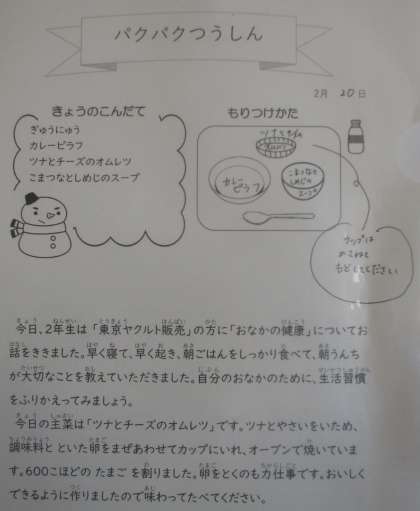 パクパクつうしん
2月 20日
きょうのこんだて
ぎゅうにゅう
カレーピラフ
ツナとチーズのオムレツ
こまつなとしめじのスープ
もりつけかた
ツナとチーズの
オムレツ
カレー
ピラフ
こまつなと
しめじの
スープ
カップは
もどしてください
今日、2年生は「東京ヤクルト販売」の方に「おなかの健康」についてお
話をききました。早く寝て、早く起き、朝ごはんをしっかり食べて、朝うんち
が大切なことを教えていただきました。自分のおなかのために、生活習慣
をふりかえってみましょう。
今日の主菜は「ツナとチーズのオムレツ」です。ツナとやさいをいため、
調味料と といた卵をまぜあわせてカップにいれ、オーブンで焼いていま
す。600こほどの たまご を割りました。卵をとくのも力仕事です。おいしく
できるように作りましたので味わってたべてください。